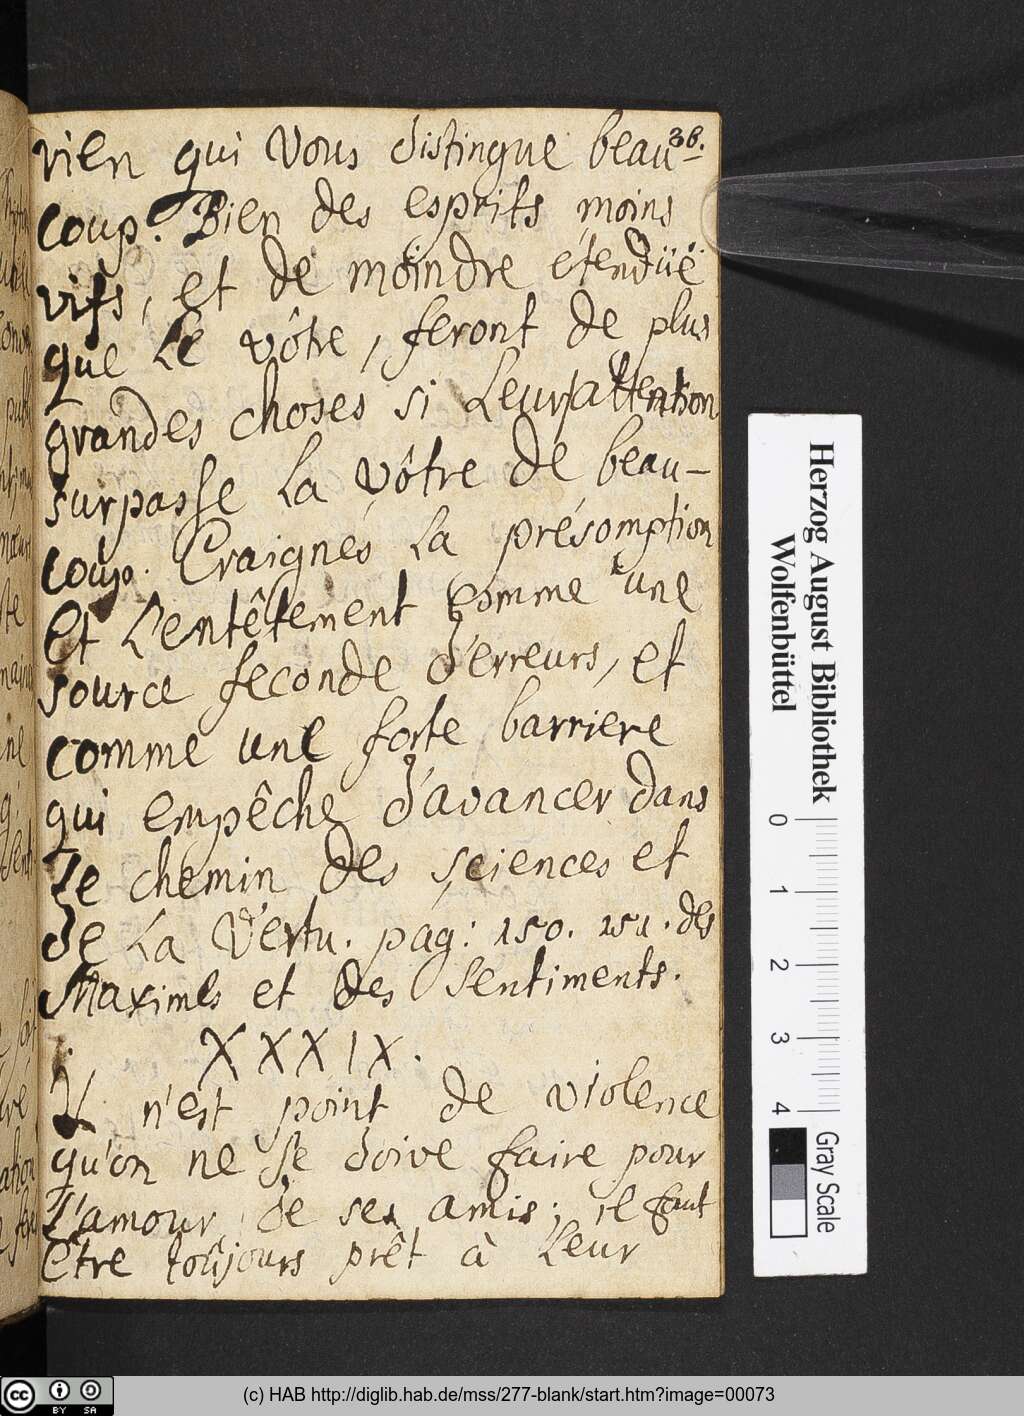 36.
rien qui vous distingue beau-
coup? Bien des esprits moins
vifs, et de moindre étenduë
que le vôtre, feront de plus
grandes choses si leur attention
surpasse la vôtre de beau-
coup. Craignés la présomption
et l'entêtement comme une
source feconde d'erreurs, et
comme une forte barriere
qui empêche d'avancer dans
le chemin des sciences et
de la Vertu. pag: 150. 151. des
Maximes et des Sentiments.
XXXIX.
Il n'est point de violence
qu'on ne se doive faire pour
l'amour de ses amis; il faut
être toûjours prêt à leur
Herzog August Bibliothek
Wolfenbüttel
0 1 2 3 4
Gray Scale
(c) HAB http://diglib.hab.de/mss/277-blank/start.htm?image=00073
cc BY SA